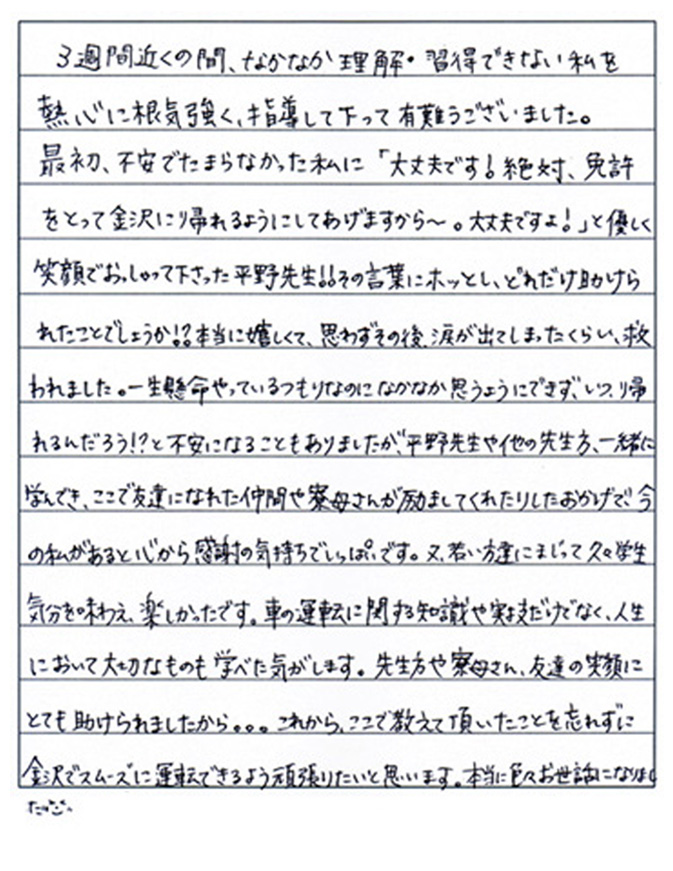 3週間近くの間、なかなか理解・習得できない私を
熱心に根気強く、指導して下って有難うございました。
最初、不安でたまらなかった私に「大丈夫です!絶対、免許
をとって金沢に帰れるようにしてあげますから〜。大丈夫ですよ!」と優しく
笑顔でおっしゃって下さった平野先生!!その言葉にホッとし、どれだけ助けら
れたことでしょうか!?本当に嬉しくて、思わずその後、涙が出てしまったくらい、救
われました。一生懸命やっているつもりなのになかなか思うようにできず、いつ、帰
れるんだろう!?と不安になることもありましたが、平野先生や他の先生方、一緒に
学んでき、ここで友達になれた仲間や寮母さんが励ましてくれたりしたおかげで、今
の私があると心から感謝の気持ちでいっぱいです。又、若い方達にまじって久々学生
気分を味わえ、楽しかったです。車の運転に関する知識や実技だけでなく、人生
において大切なものも学べた気がします。先生方や寮母さん、友達の笑顔に
とても助けられましたから。。。これから、ここで教えて頂いたことを忘れずに
金沢でスムーズに運転できるよう頑張りたいと思います。本当に色々お世話になりまし
た